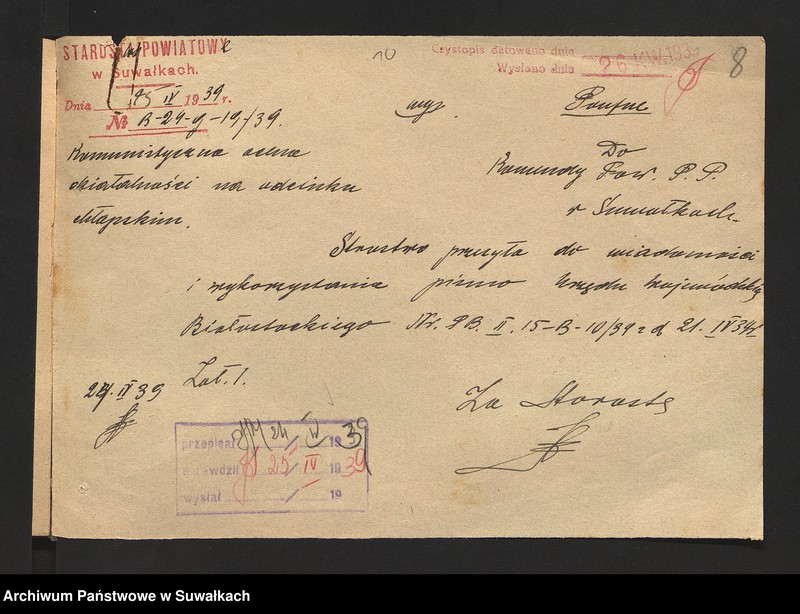 STAROSTA POWIATOWY
w Suwałkach.
Dnia 25 IV 1939 r.
№ B-24-g-19/39.
10
Czystopis datowano dnia
Wysłano dnia 26.KW.1939
8
Poufne
Komunistyczna ocena
działalności na odcinku
chłopskim.
Do
Komendy Pow. P. P.
w Suwałkach
Starostwo przesyła do wiadomości
i wykorzystania pismo Urzędu Wojewódzkiego
Białostockiego Nr. PB. II. 15-B-10/39 z d 21. IV 39r
Zał. 1.
24. IV 39
Za Starostę
przepisał 24 IV 1939
sprawdził 25 / IV 1939
wysłał / 19
Archiwum Państwowe w Suwałkach